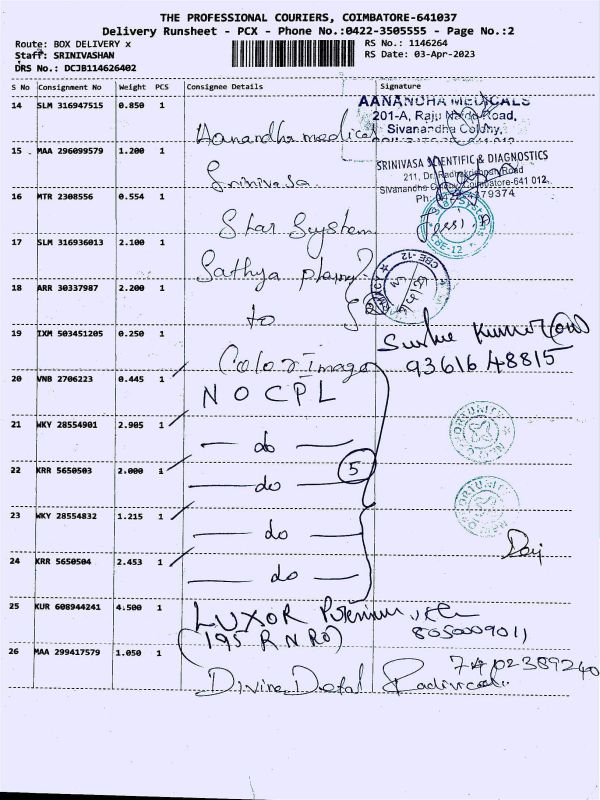 THE PROFESSIONAL COURIERS, COIMBATORE-641037
Delivery Runsheet - PCX - Phone No.:0422-3505555 - Page No.:2
Route: BOX DELIVERY x
Staff: SRINIVASHAN
DRS No.: DCJB114626402
RS No.: 1146264
RS Date: 03-Apr-2023
S No Consignment No Weight PCS Consignee Details Signature
14 SLM 316947515 0.850 1
AANANDHA MEDICALS
201-A, Raju Naidu Road,
Sivanandha Colony,
Aanandha medical
15 MAA 296099579 1.200 1
SRINIVASA SCIENTIFIC & DIAGNOSTICS
211, Dr. Radhakrishnan Road
Sivanandha Colony, Coimbatore-641 012.
Srinivasa
16 MTR 2308556 0.554 1
Star System
CBE-12
17 SLM 316936013 2.100 1
Sathya
CBE-12
18 ARR 30337987 2.200 1
to
19 IXM 503451205 0.250 1
Kumar
93616 48815
Color Image
20 VNB 2706223 0.445 1
NOCPL
21 WKY 28554901 2.905 1
do
5
22 KRR 5650503 2.000 1
do
23 WKY 28554832 1.215 1
do
24 KRR 5650504 2.453 1
do
25 KUR 608944241 4.500 1
LUXOR
8050009011
26 MAA 299417579 1.050 1
Divine Detal